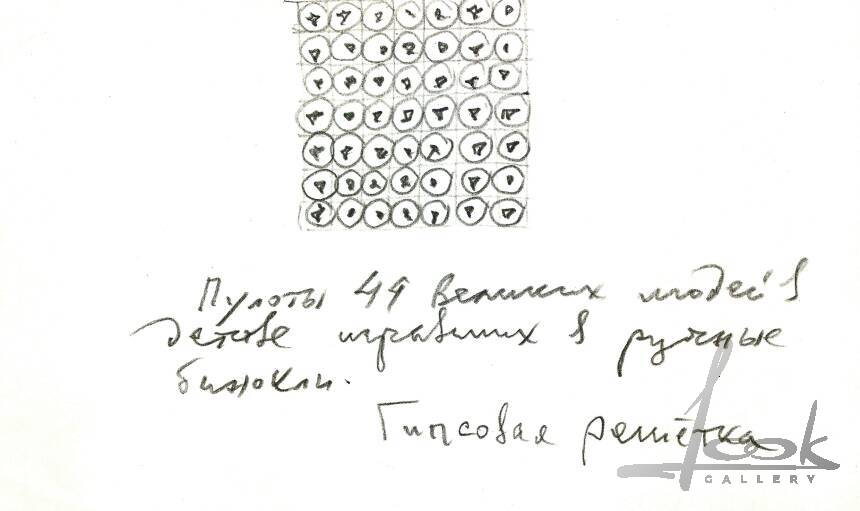 49 великих людей в
детстве игравших в ручные
бинокли.
Гипсовая решётка
look
GALLERY